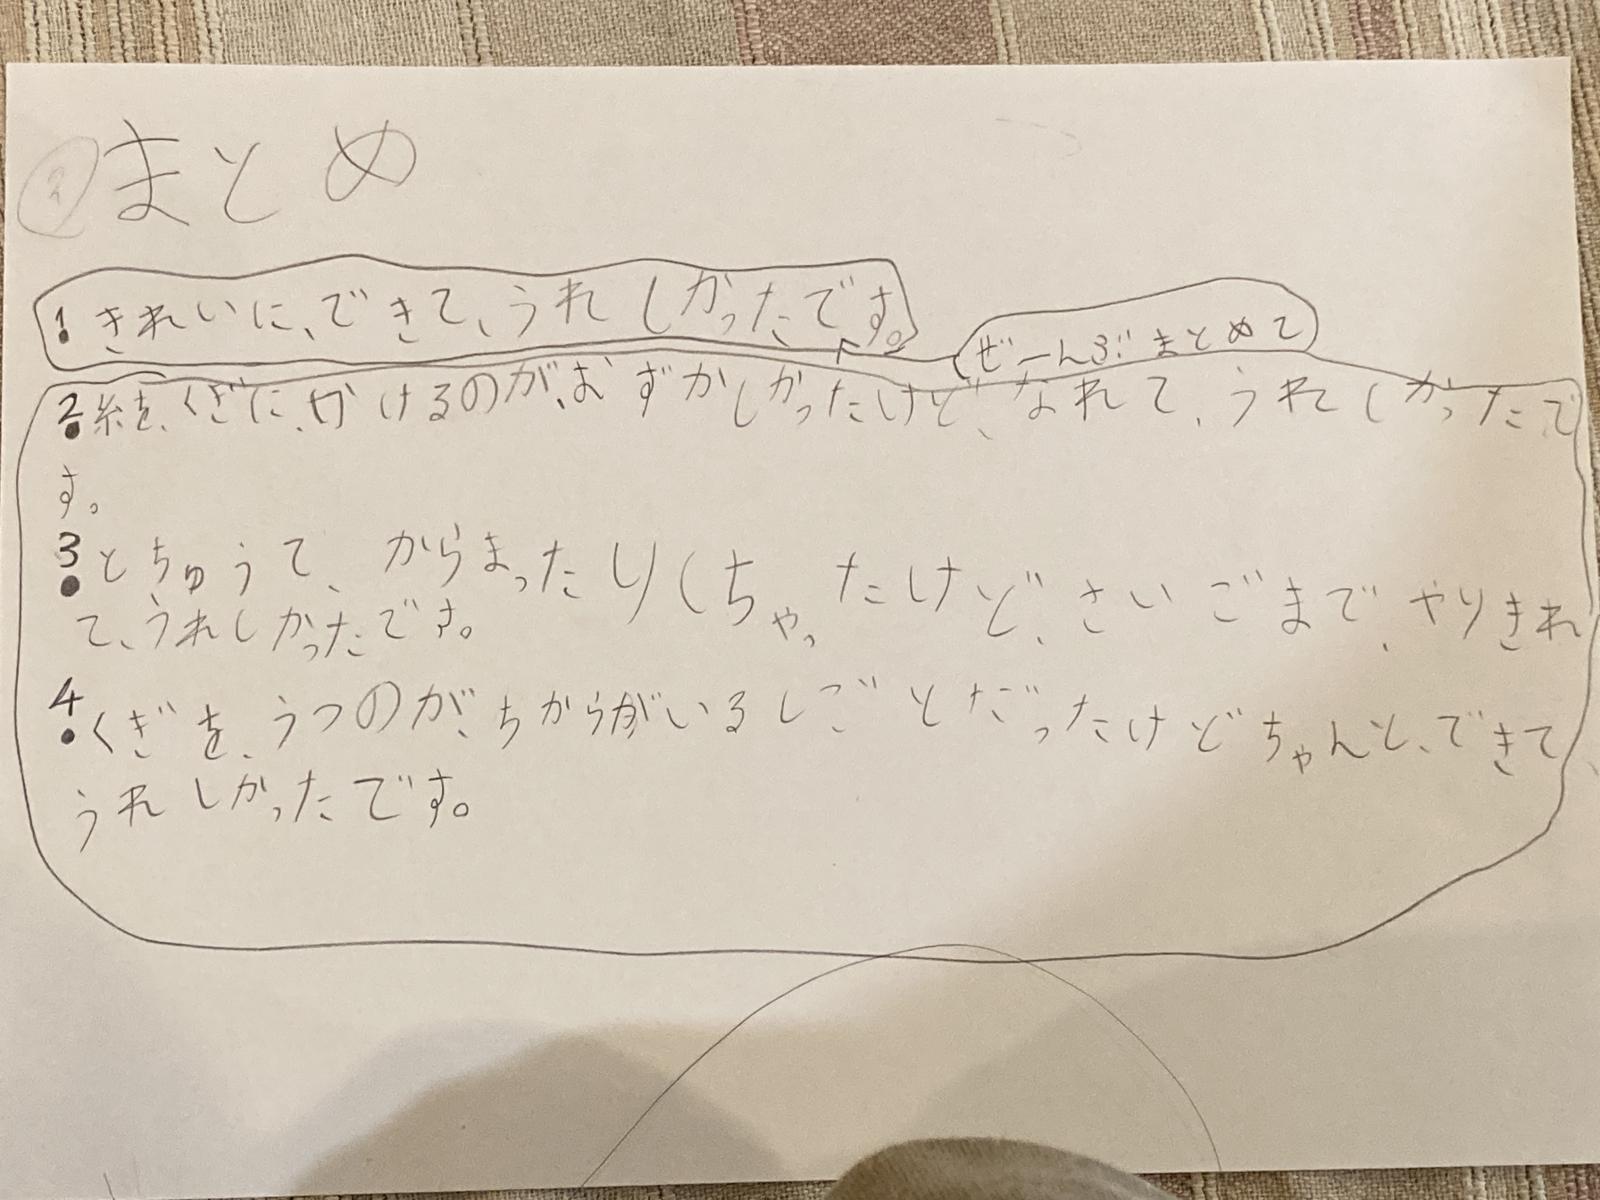 まとめ
1. きれいに、できて、うれしかったです。
ぜーんぶまとめて
2. 糸を、くぎに、かけるのが、おずかしかったけど、なれて、うれしかったで
す。
3. とちゅうて、からまったりしちゃったけど、さいごまで、やりきれ
て、うれしかったです。
4. くぎを、うつのが、ちからがいるしごとだったけどちゃんと、できて、
うれしかったです。